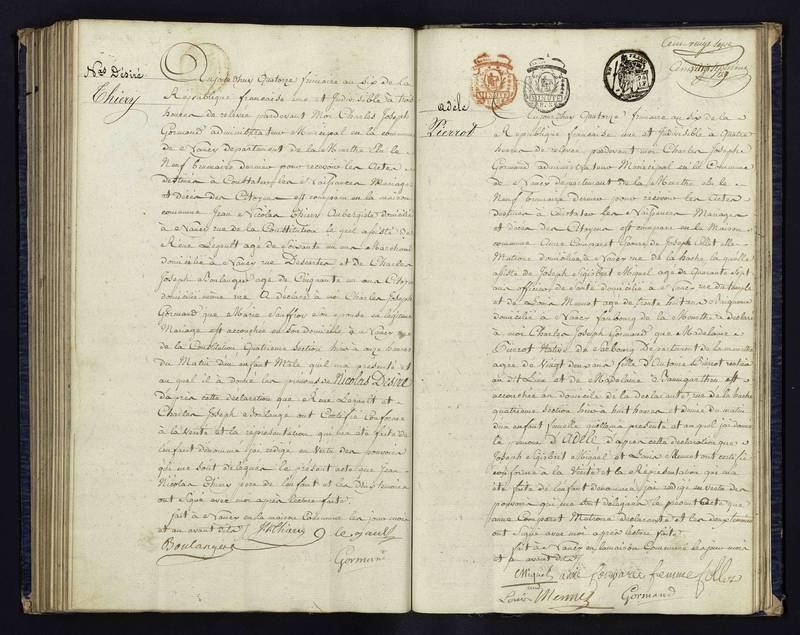 Nas Désiré
Thiery
Aujourd'huy Quatorze frimaire an Six de la
République française une et Indivisible à trois
heures de relevée pardevant Moi Charles Joseph
Gormand administrateur Municipal en la commune
de Nancy département de la Meurthe élu le
Neuf brumaire dernier pour recevoir les Actes
destinés à Constater les Naissances Mariages
et Décès des Citoyens est comparu en la maison
commune Jean Nicolas Thiery Aubergiste domicilié
à Nancy rue de la Constitution le quel assisté de
René agé de Soixante un ans Marchand
domicilié à Nancy rue Descartes et de Charles
Joseph Boulanger agé de Cinquante un ans Citoyen
domicilié même rue A déclaré à moi Charles Joseph
Gormand que Marie son épouse en légitime
Mariage est accouchée en Son domicile à Nancy rue
de la Constitution Quatrieme Section hier à onze heures
du Matin d'un enfant Male quil ma présenté et
au quel il à donné les prénoms de Nicolas Désiré
d'après cette déclaration que René et
Charles Joseph Boulanger ont Certifié Conforme
à la Vérité et la représentation qui ma été faite de
l'enfant dénommé j'ai rédigé en Vertu des pouvoirs
qui me Sont délégués le présent acte que Jean
Nicolas Thiery père de l'enfant et les deux témoins
ont Signé avec moi après lecture faite.
fait à Nancy en la maison Commune les jour mois
et an avant dits JN Thiery
Boulanger
Gormand
adèle
Pierrot
Aujourd'huy Quatorze frimaire an Six de la
République française une et Indivisible à Quatre
heures de relevée pardevant moi Charles Joseph
Gormand administrateur Municipal en la Commune
de Nancy département de la Meurthe élu le
Neuf brumaire dernier pour recevoir les Actes
destinés à Constater les Naissances Mariages
et décès des Citoyens est comparue en la Maison
commune Anne Comparet femme de Joseph
Matrone domiciliée à Nancy rue de la hache la quelle
assistée de Joseph Sigisbert Miquel agé de Quarante Sept
ans officier de Santé domicilié à Nancy rue du temple
et de Louis agé de trente huit ans
domicilié à Nancy faubourg de la Meurthe à déclaré
à moi Charles Joseph Gormand que Madelaine
Pierrot Native de Sarbourg Département de la meurthe
agée de Vingt deux ans fille d'Antoine Pierrot rentier
au dit Lieu et de Madelaine est
accouchée au domicile de la déclarante rue de la hache
quatrième Section hier à huit heures et demie du matin
d'un enfant femelle quelle ma présenté et au quel j'ai donné
le prénom d'Adèle d'après cette déclaration que
Joseph Sigisbert Miquel et Louis ont certifié
conforme à la Vérité et la Représentation qui ma
été faite de l'enfant dénommé j'ai rédigé en Vertu des
pouvoirs qui me Sont délégués le présent Acte que
anne Comparet Matrone déclarante et les deux témoins
ont Signé avec moi après lecture faite
fait à Nancy en la maison Commune les jour mois
et an avant dits
Miquel femme
Louis Gormand